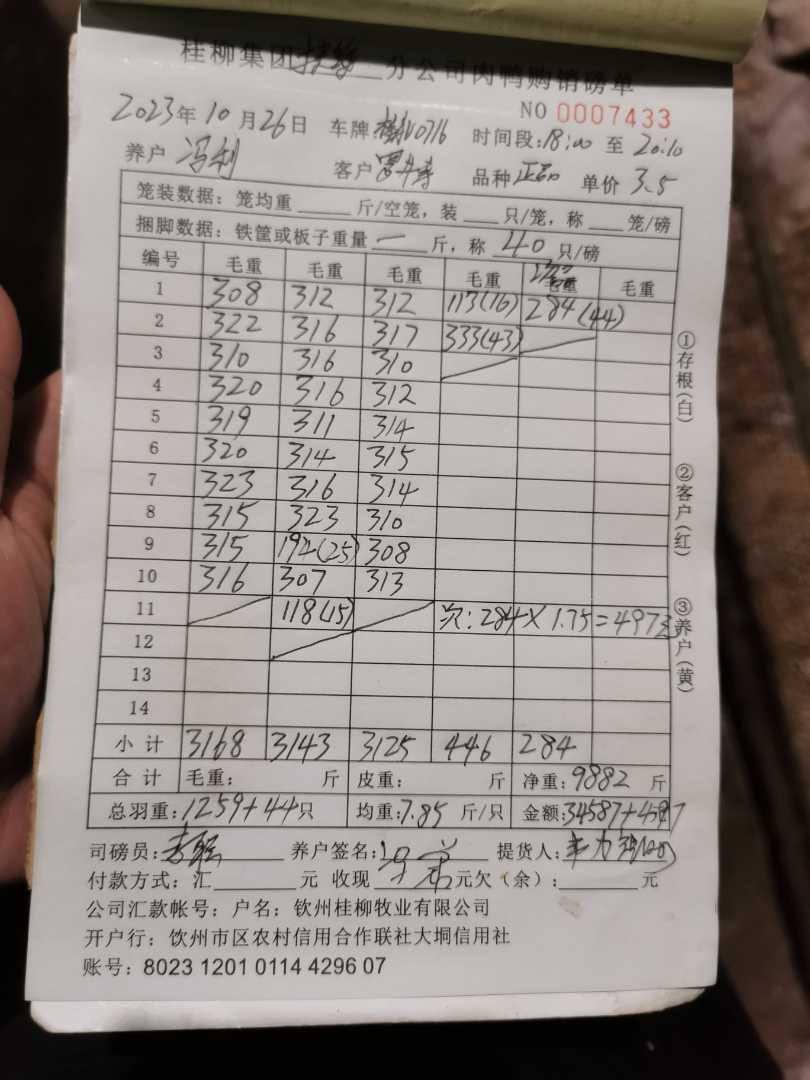 桂柳集团 分公司肉鸭购销磅单
NO 0007433
2023年10月26日 车牌: V0716 时间段:18:00 至 20:10
养户 冯利 客户 品种 正品 单价 3.5
笼装数据: 笼均重 斤/空笼, 装 只/笼, 称 笼/磅
捆脚数据: 铁筐或板子重量 一 斤, 称 40 只/磅
编号 毛重 毛重 毛重 毛重 毛重 毛重
1 308 312 312 113(16) 284(44)
2 322 316 317 333(43)
3 310 316 310
4 320 316 312
5 319 311 314
6 320 314 315
7 323 316 314
8 315 323 310
9 315 192(25) 308
10 316 307 313
11 118(15) 次: 284×1.75=497元
12
13
14
小计 3168 3143 3125 446 284
合计 毛重: 斤 皮重: 斤 净重: 9882 斤
总羽重: 1259+44只 均重: 7.85 斤/只 金额: 34587+497
司磅员: 养户签名: 提货人:
付款方式: 汇 元 收现 元欠(余): 元
公司汇款帐号: 户名: 钦州桂柳牧业有限公司
开户行: 钦州市区农村信用合作联社大垌信用社
账号: 8023 1201 0114 4296 07
①存根(白)
②客户(红)
③养户(黄)